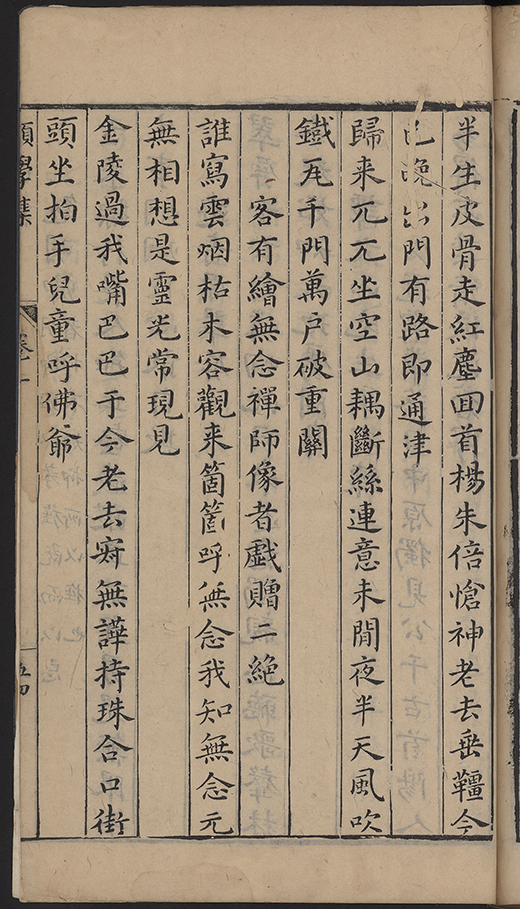 半生皮骨走紅塵囬首楊朱倍愴神老去垂韁今
已晚出門有路即通津
歸来兀兀坐空山耦斷絲連意未閒夜半天風吹
鐵瓦千門萬户破重關
客有繪無念禪師像者戱贈二絶
誰寫雲烟枯木容觀来箇箇呼無念我知無念元
無相想是靈光常現見
金陵過我嘴巴巴于今老去寂無譁持珠合口街
頭坐拍手兒童呼佛爺
學集
卷